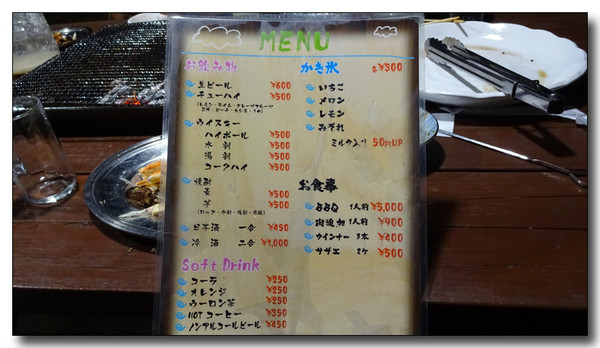 MENU
お飲み物
生ビール ¥600
チューハイ ¥500
ウイスキー
ハイボール ¥500
水割 ¥500
湯割 ¥500
コークハイ ¥500
焼酎
麦 ¥500
芋 ¥500
日本酒 一合 ¥450
冷酒 二合 ¥1,000
Soft Drink
コーラ ¥250
オレンジ ¥250
ウーロン茶 ¥250
HOTコーヒー ¥350
ノンアルコールビール ¥450
かき氷 各¥300
いちご
メロン
レモン
みぞれ
ミルク入り 50円UP
お食事
BBQ 1人前 ¥5,000
肉追加 1人前 ¥900
ウインナー 3本 ¥400
サザエ 2ケ ¥500